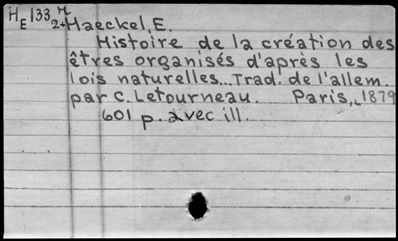 HE 133 M
2+ Haeckel, E.
Histoire de la création des
êtres organisés d'après les
lois naturelles... Trad. de l'allem.
par C. Letourneau. Paris, 1879
601 p. avec ill.